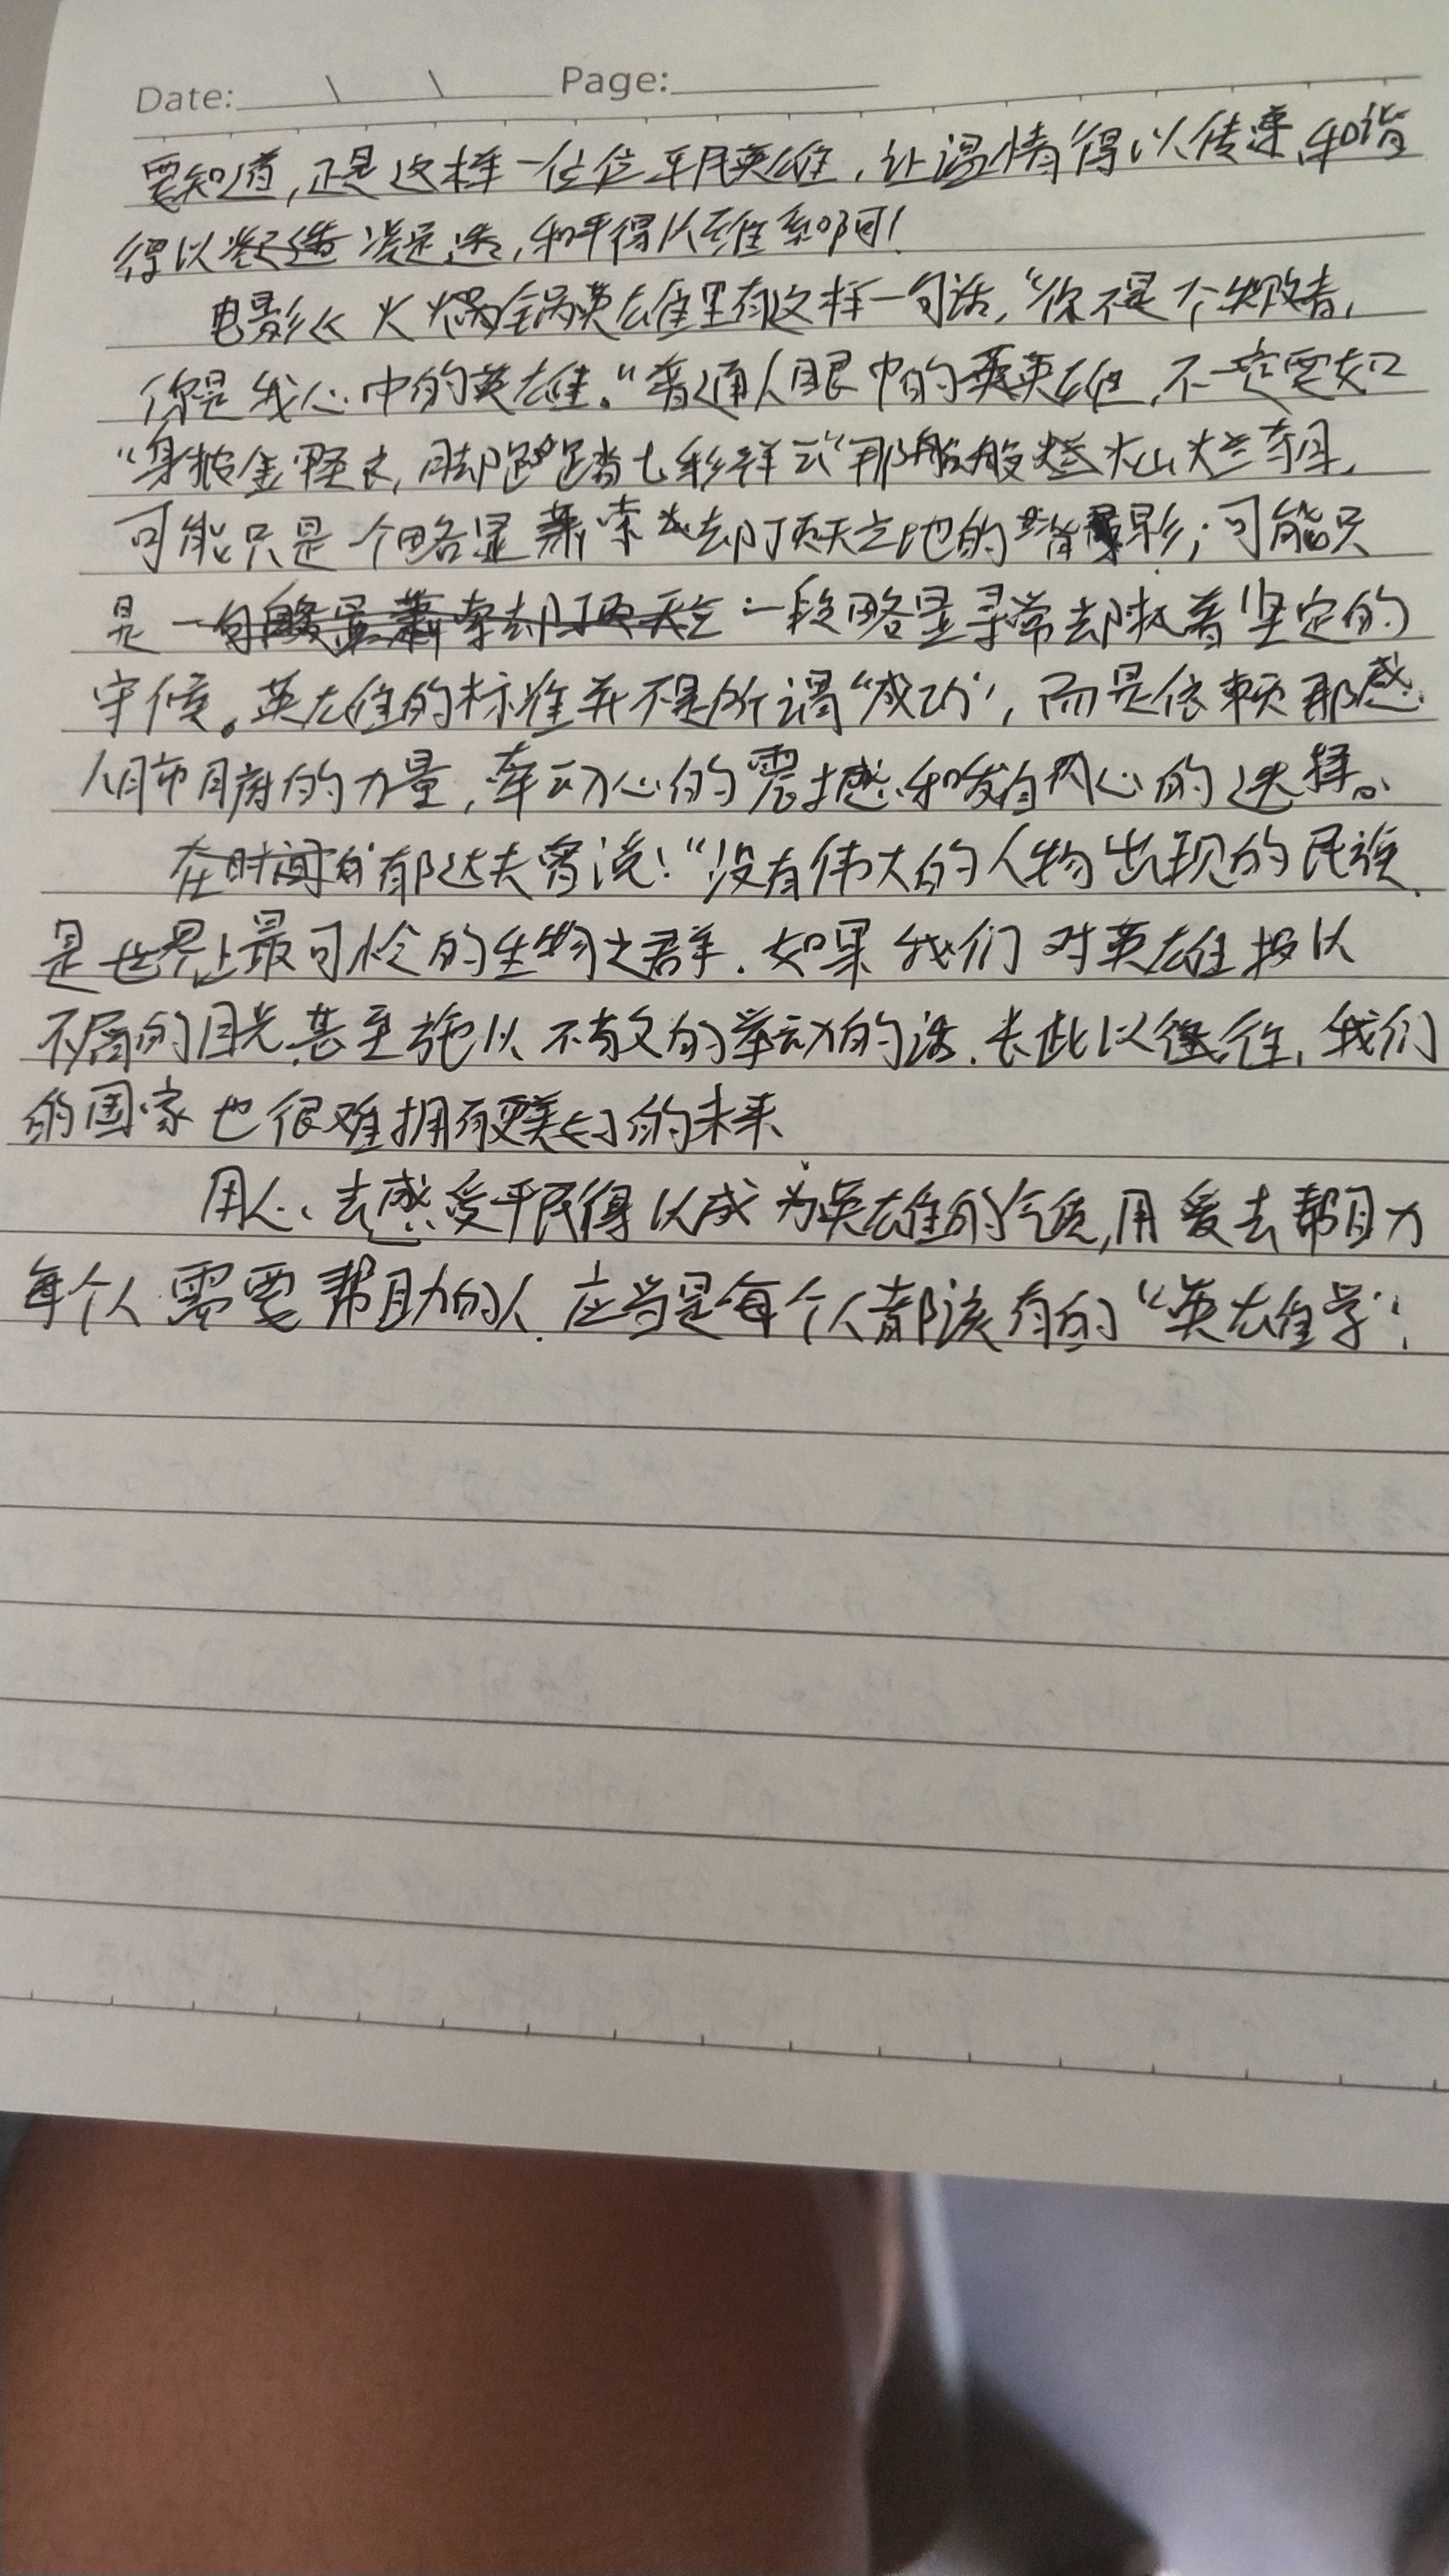 Date: \ \ Page:
要知道,正是这样一位位平民英雄,让温情得以传递,和谐
得以凝造,和平得以维系啊!
电影《火锅英雄里有这样一句话,“你不是个失败者,
你是我心中的英雄。”普通人眼中的英雄,不一定要如
“身披金怪衣,脚踏七彩祥云”那般灿烂夺目,
可能只是一个略显萧索却顶天立地的背影;可能只
是一段略显寻常却执着坚定的
守候。英雄的标准并不是所谓“成功”,而是依赖那感
人肺腑的力量,牵动心的震撼和发自内心的选择。
郁达夫曾说:“没有伟大的人物出现的民族,
是世界上最可怜的生物之群.如果我们对英雄投以
不屑的目光,甚至施以不敬的举动的话,长此以往,我们
的国家也很难拥有更美好的未来.
用心去感受平民得以成为英雄的气质,用爱去帮助
每个人需要帮助的人.应当是每个人都该有的“英雄学”.